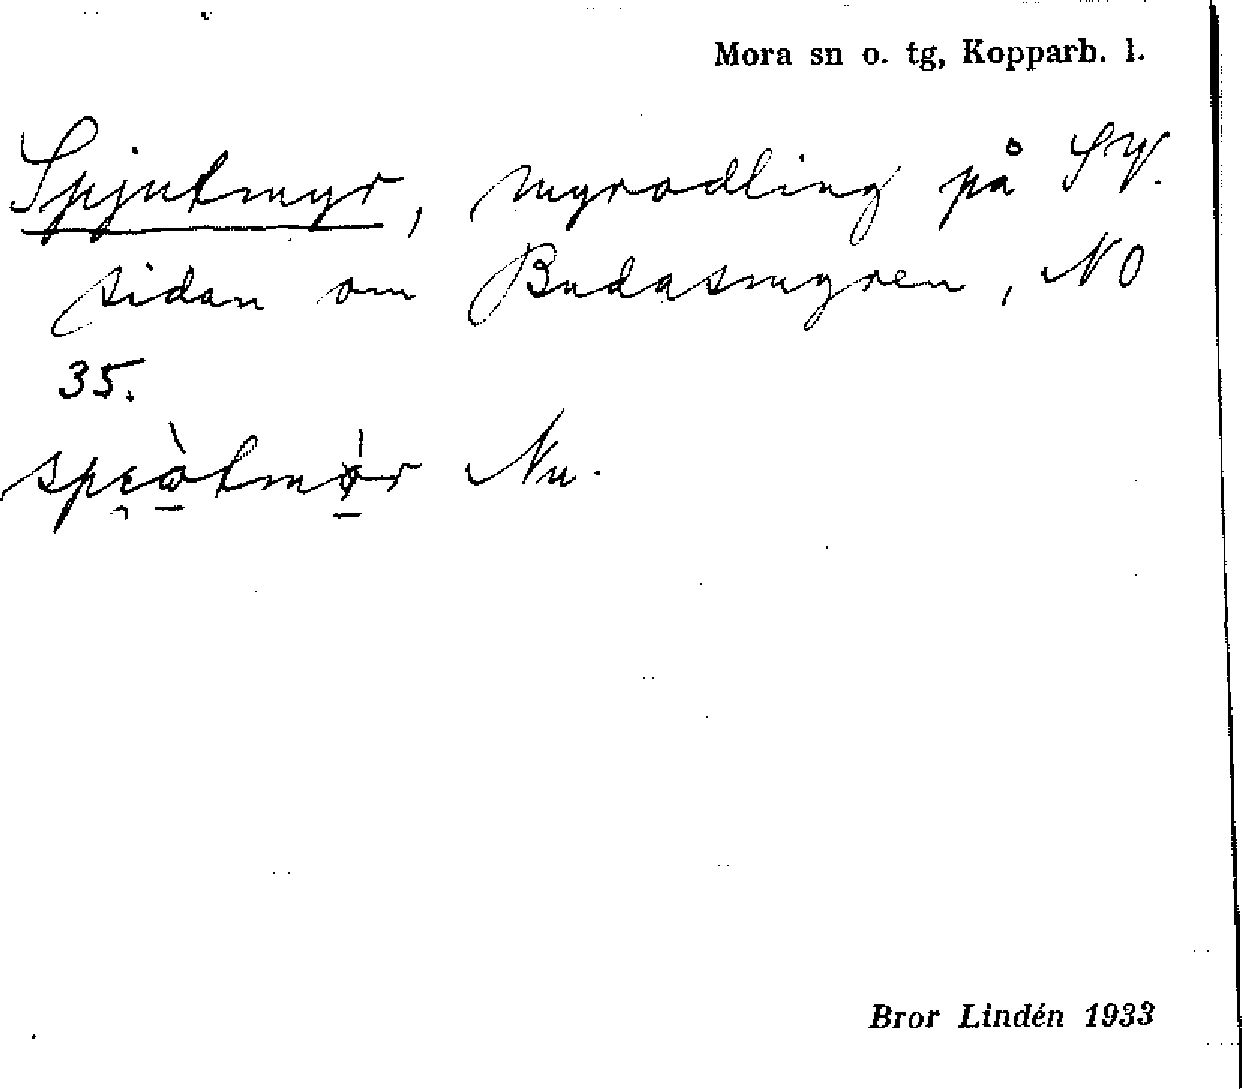 Mora sn o. tg, Kopparb. l.
Spjutmyr, myrodling på SV.
sidan om Budasmyren, NO
35.
Nu.
Bror Lindén 1933